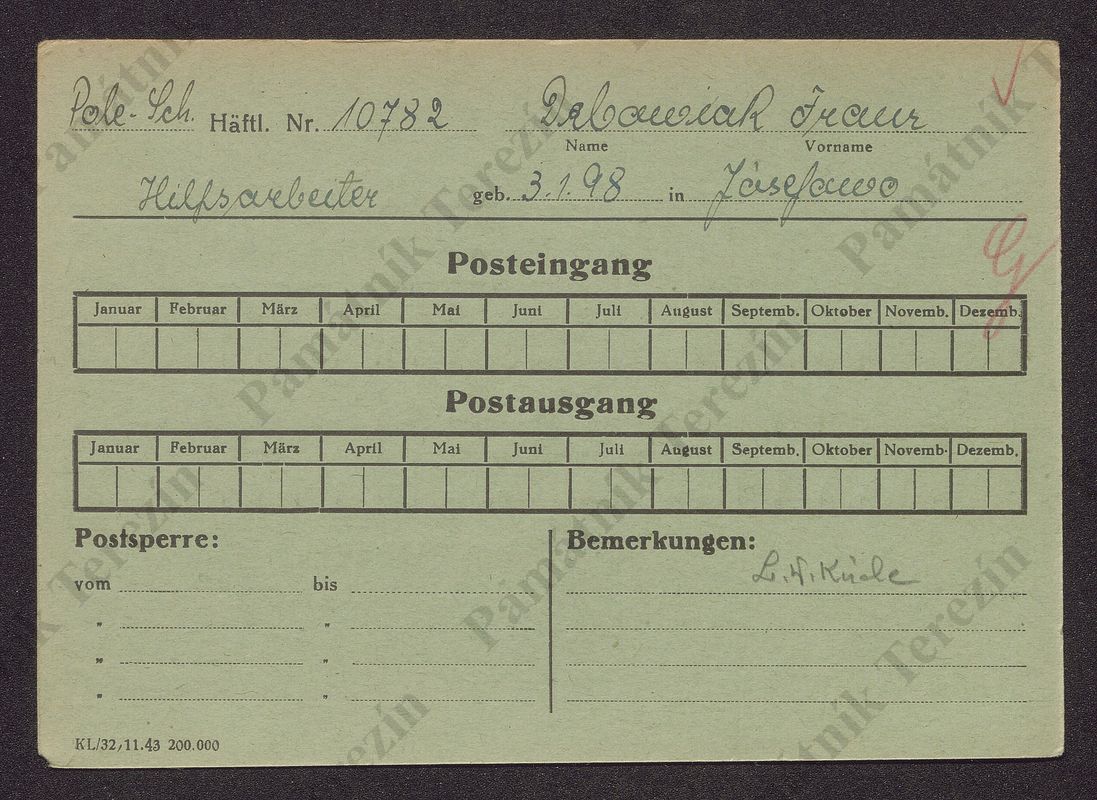 Pole-Sch. Häftl. Nr. 10782 Franz
Name Vorname
Hilfsarbeiter geb. 3.1.98 in Jósefowo
Posteingang
Januar Februar März April Mai Juni Juli August Septemb. Oktober Novemb. Dezemb.
Postausgang
Januar Februar März April Mai Juni Juli August Septemb. Oktober Novemb. Dezemb.
Postsperre: Bemerkungen:
vom bis
" "
" "
" "
KL/32/11.43 200.000
Památník Terezín